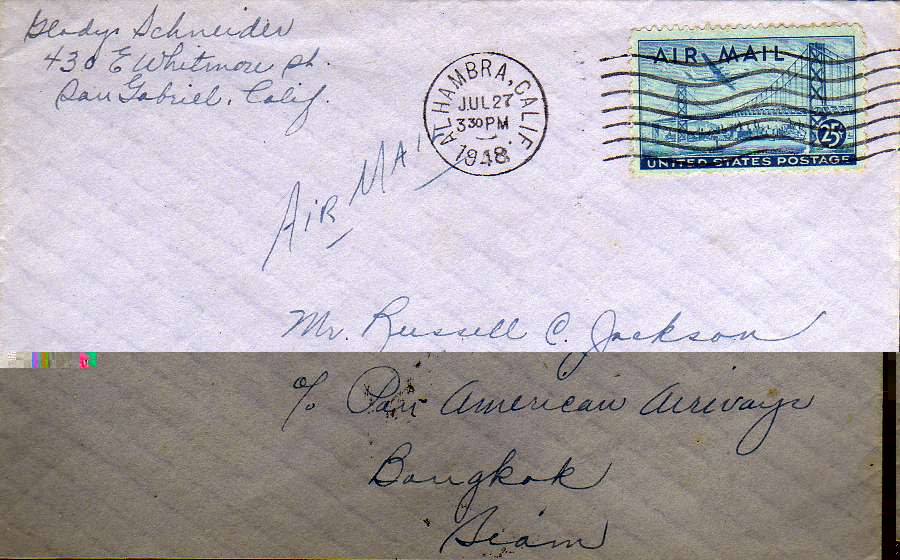 Gladys Schneider
430 E Whitmore St.
San Gabriel, Calif.
ALHAMBRA, CALIF.
JUL 27
3 30 PM
1948
AIR MAIL
25¢
UNITED STATES POSTAGE
AIR MAIL
Mr. Russell C. Jackson
c/o Pan American Airways
Bangkok
Siam